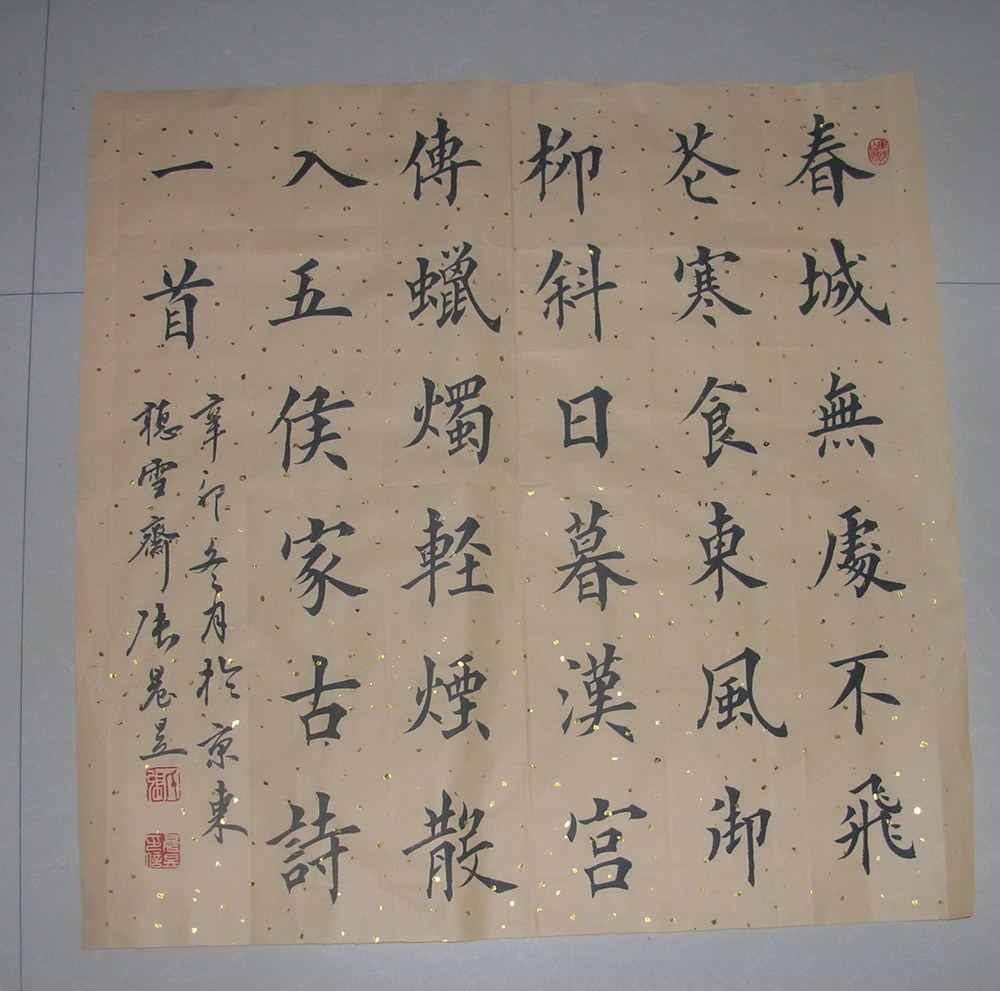 春城無處不飛
花寒食東風御
柳斜日暮漢宫
傳蠟燭軽煙散
入五侯家古詩
一首
辛卯冬月於京東
聽雪齋张晨昱
張氏
晨昱印信